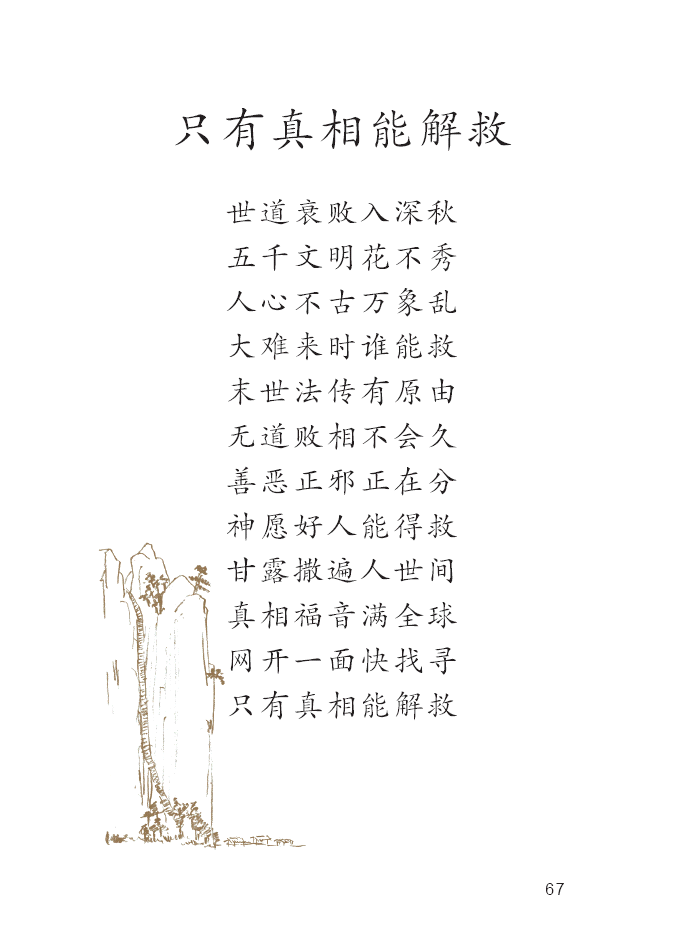 只有真相能解救
世道衰败入深秋
五千文明花不秀
人心不古万象乱
大难来时谁能救
末世法传有原由
无道败相不会久
善恶正邪正在分
神愿好人能得救
甘露撒遍人世间
真相福音满全球
网开一面快找寻
只有真相能解救
67